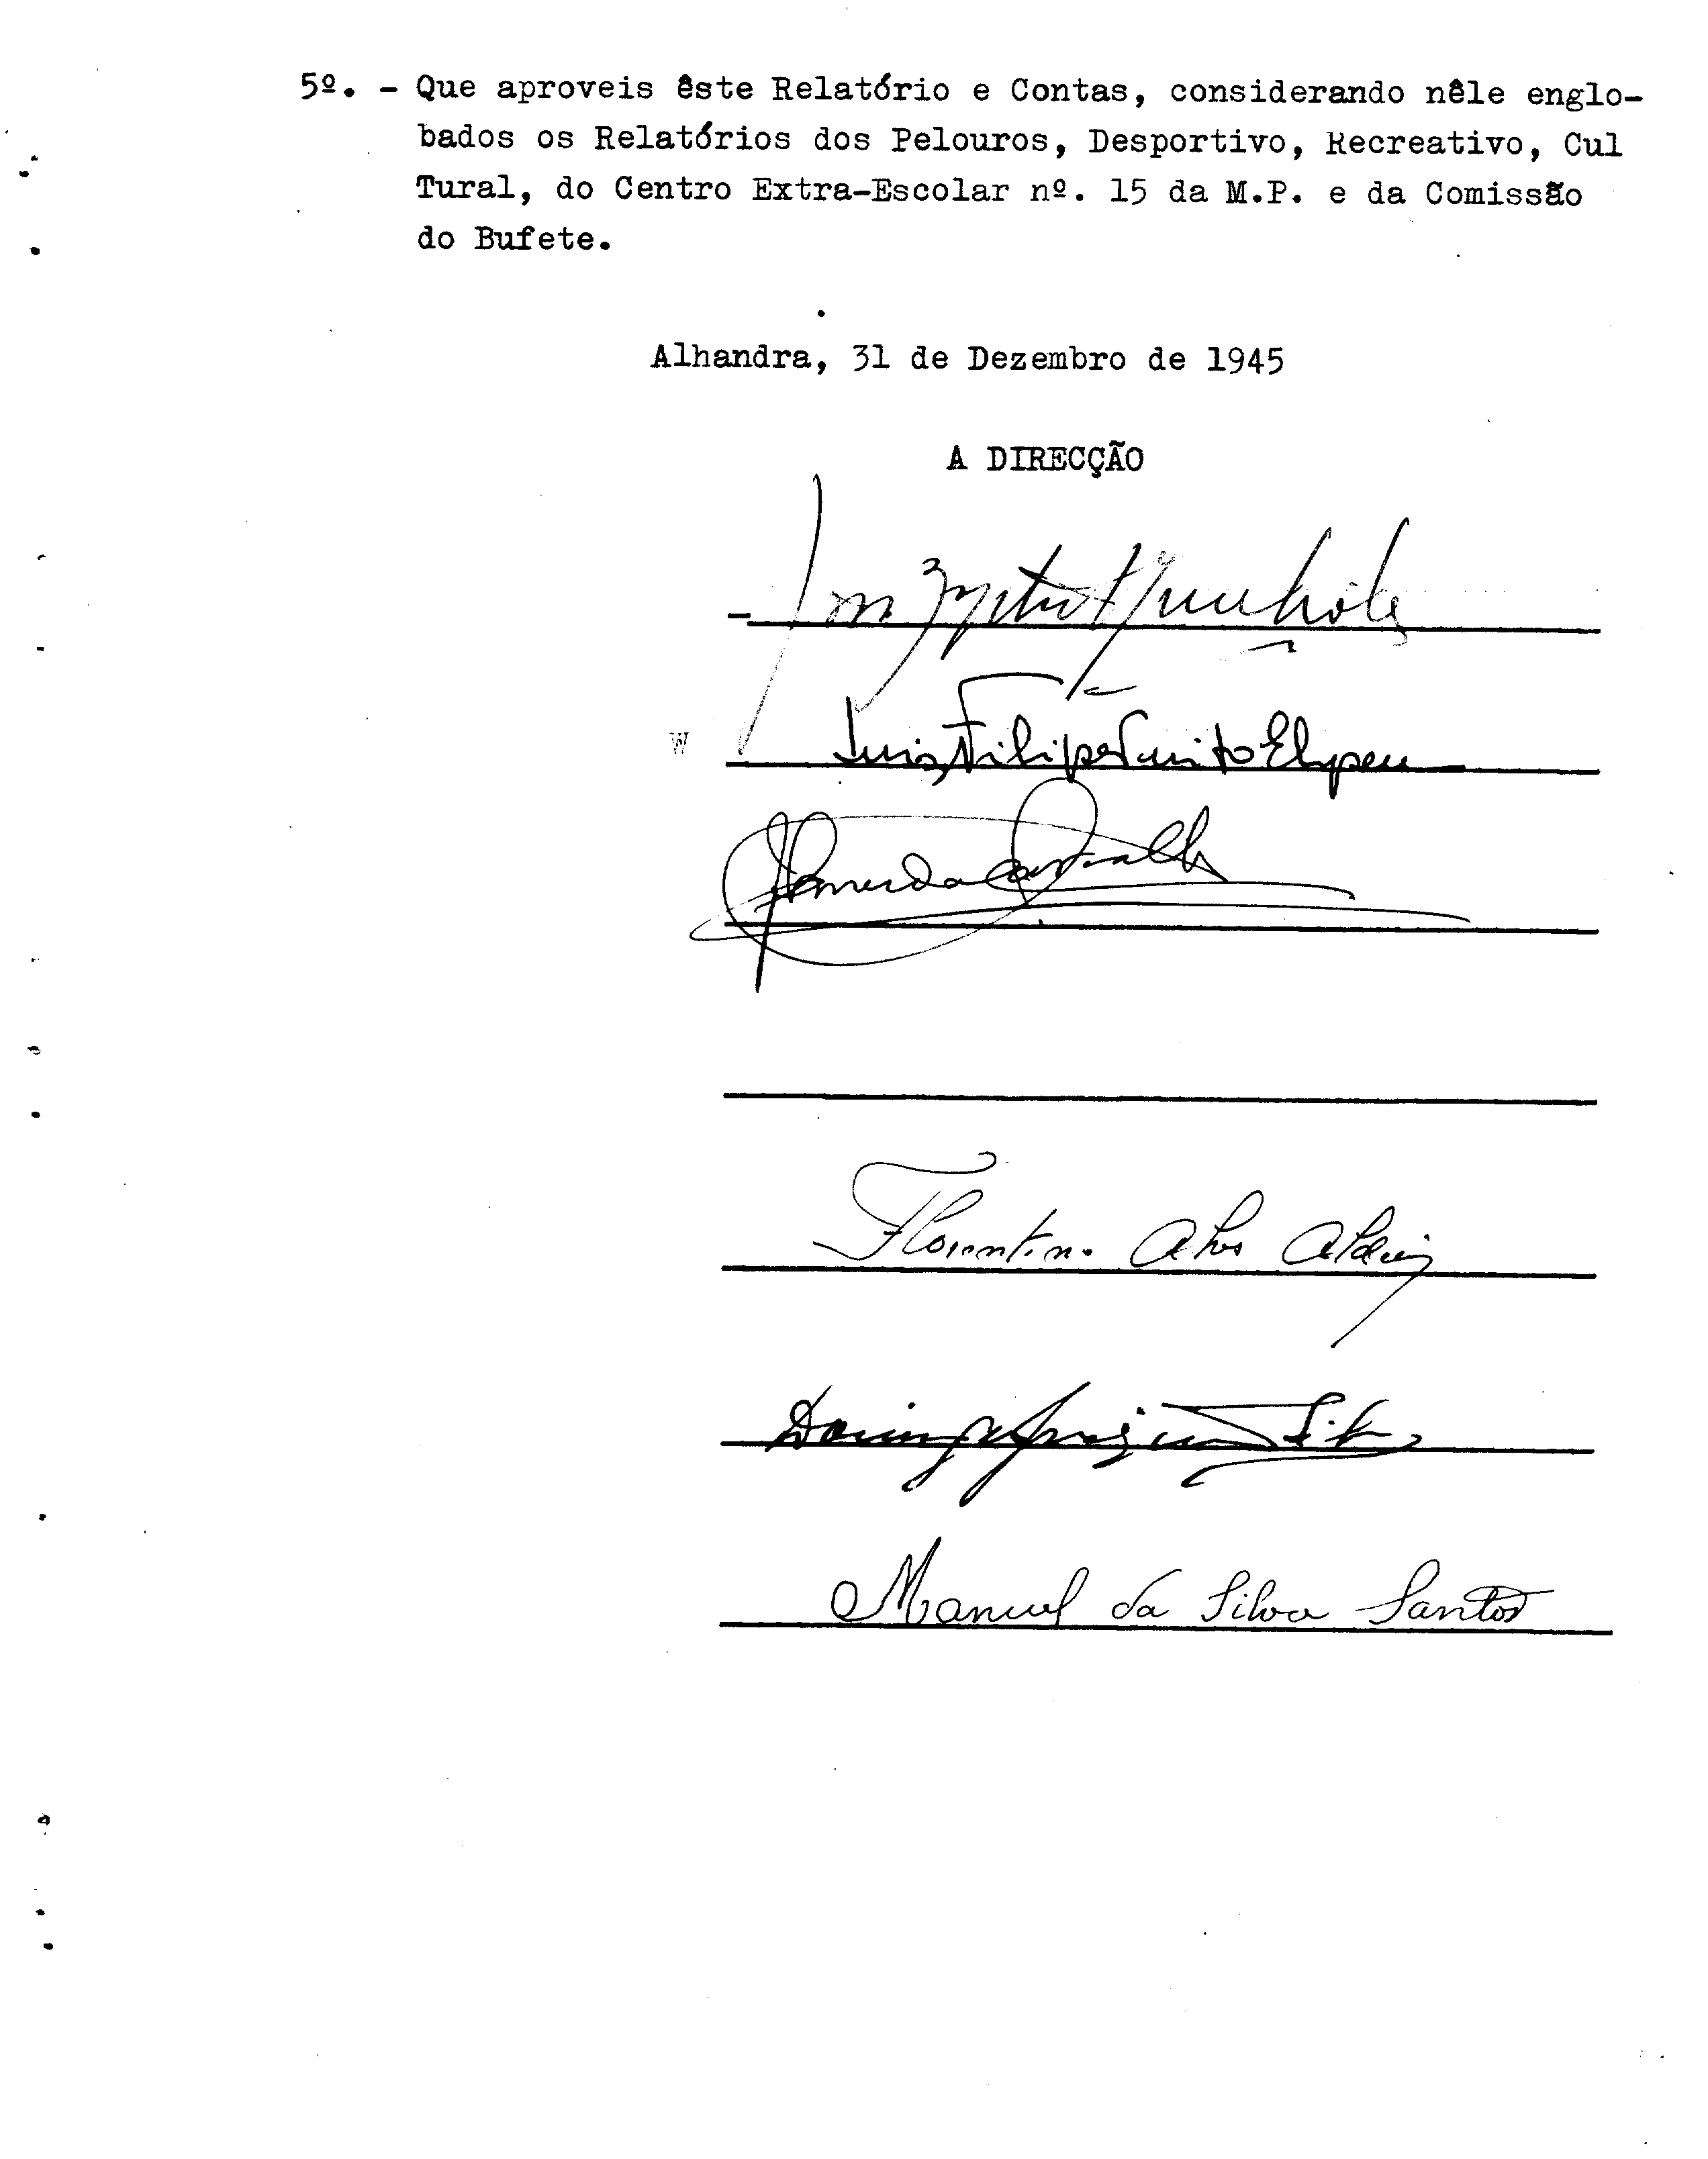 5º. - Que aproveis êste Relatório e Contas, considerando nêle englo-
bados os Relatórios dos Pelouros, Desportivo, Recreativo, Cul
Tural, do Centro Extra-Escolar nº. 15 da M.P. e da Comissão
do Bufete.
Alhandra, 31 de Dezembro de 1945
A DIRECÇÃO
W
Luis Filipe
Almeida Carvalho
Florentino Alves
Domingos Silva
Manuel da Silva Santos